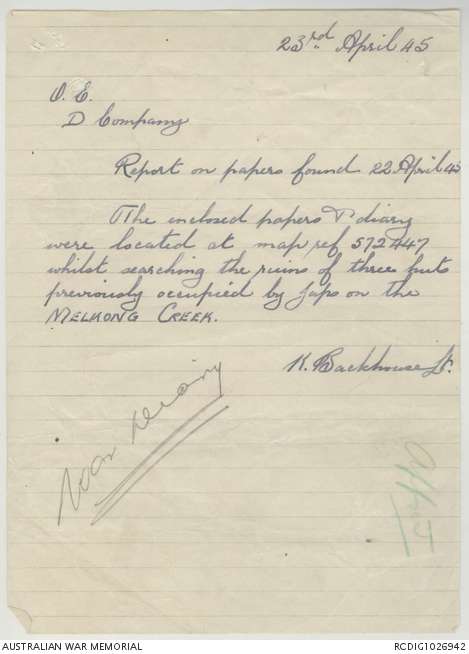 23rd April 45
O.C.
D Company
Report on papers found 22 April 45
The enclosed papers & diary
were located at map ref 572447
whilst searching the ruins of three huts
previously occupied by Japs on the
MELKONG CREEK.
K. Backhouse Lt.
War Diary
AUSTRALIAN WAR MEMORIAL
RCDIG1026942